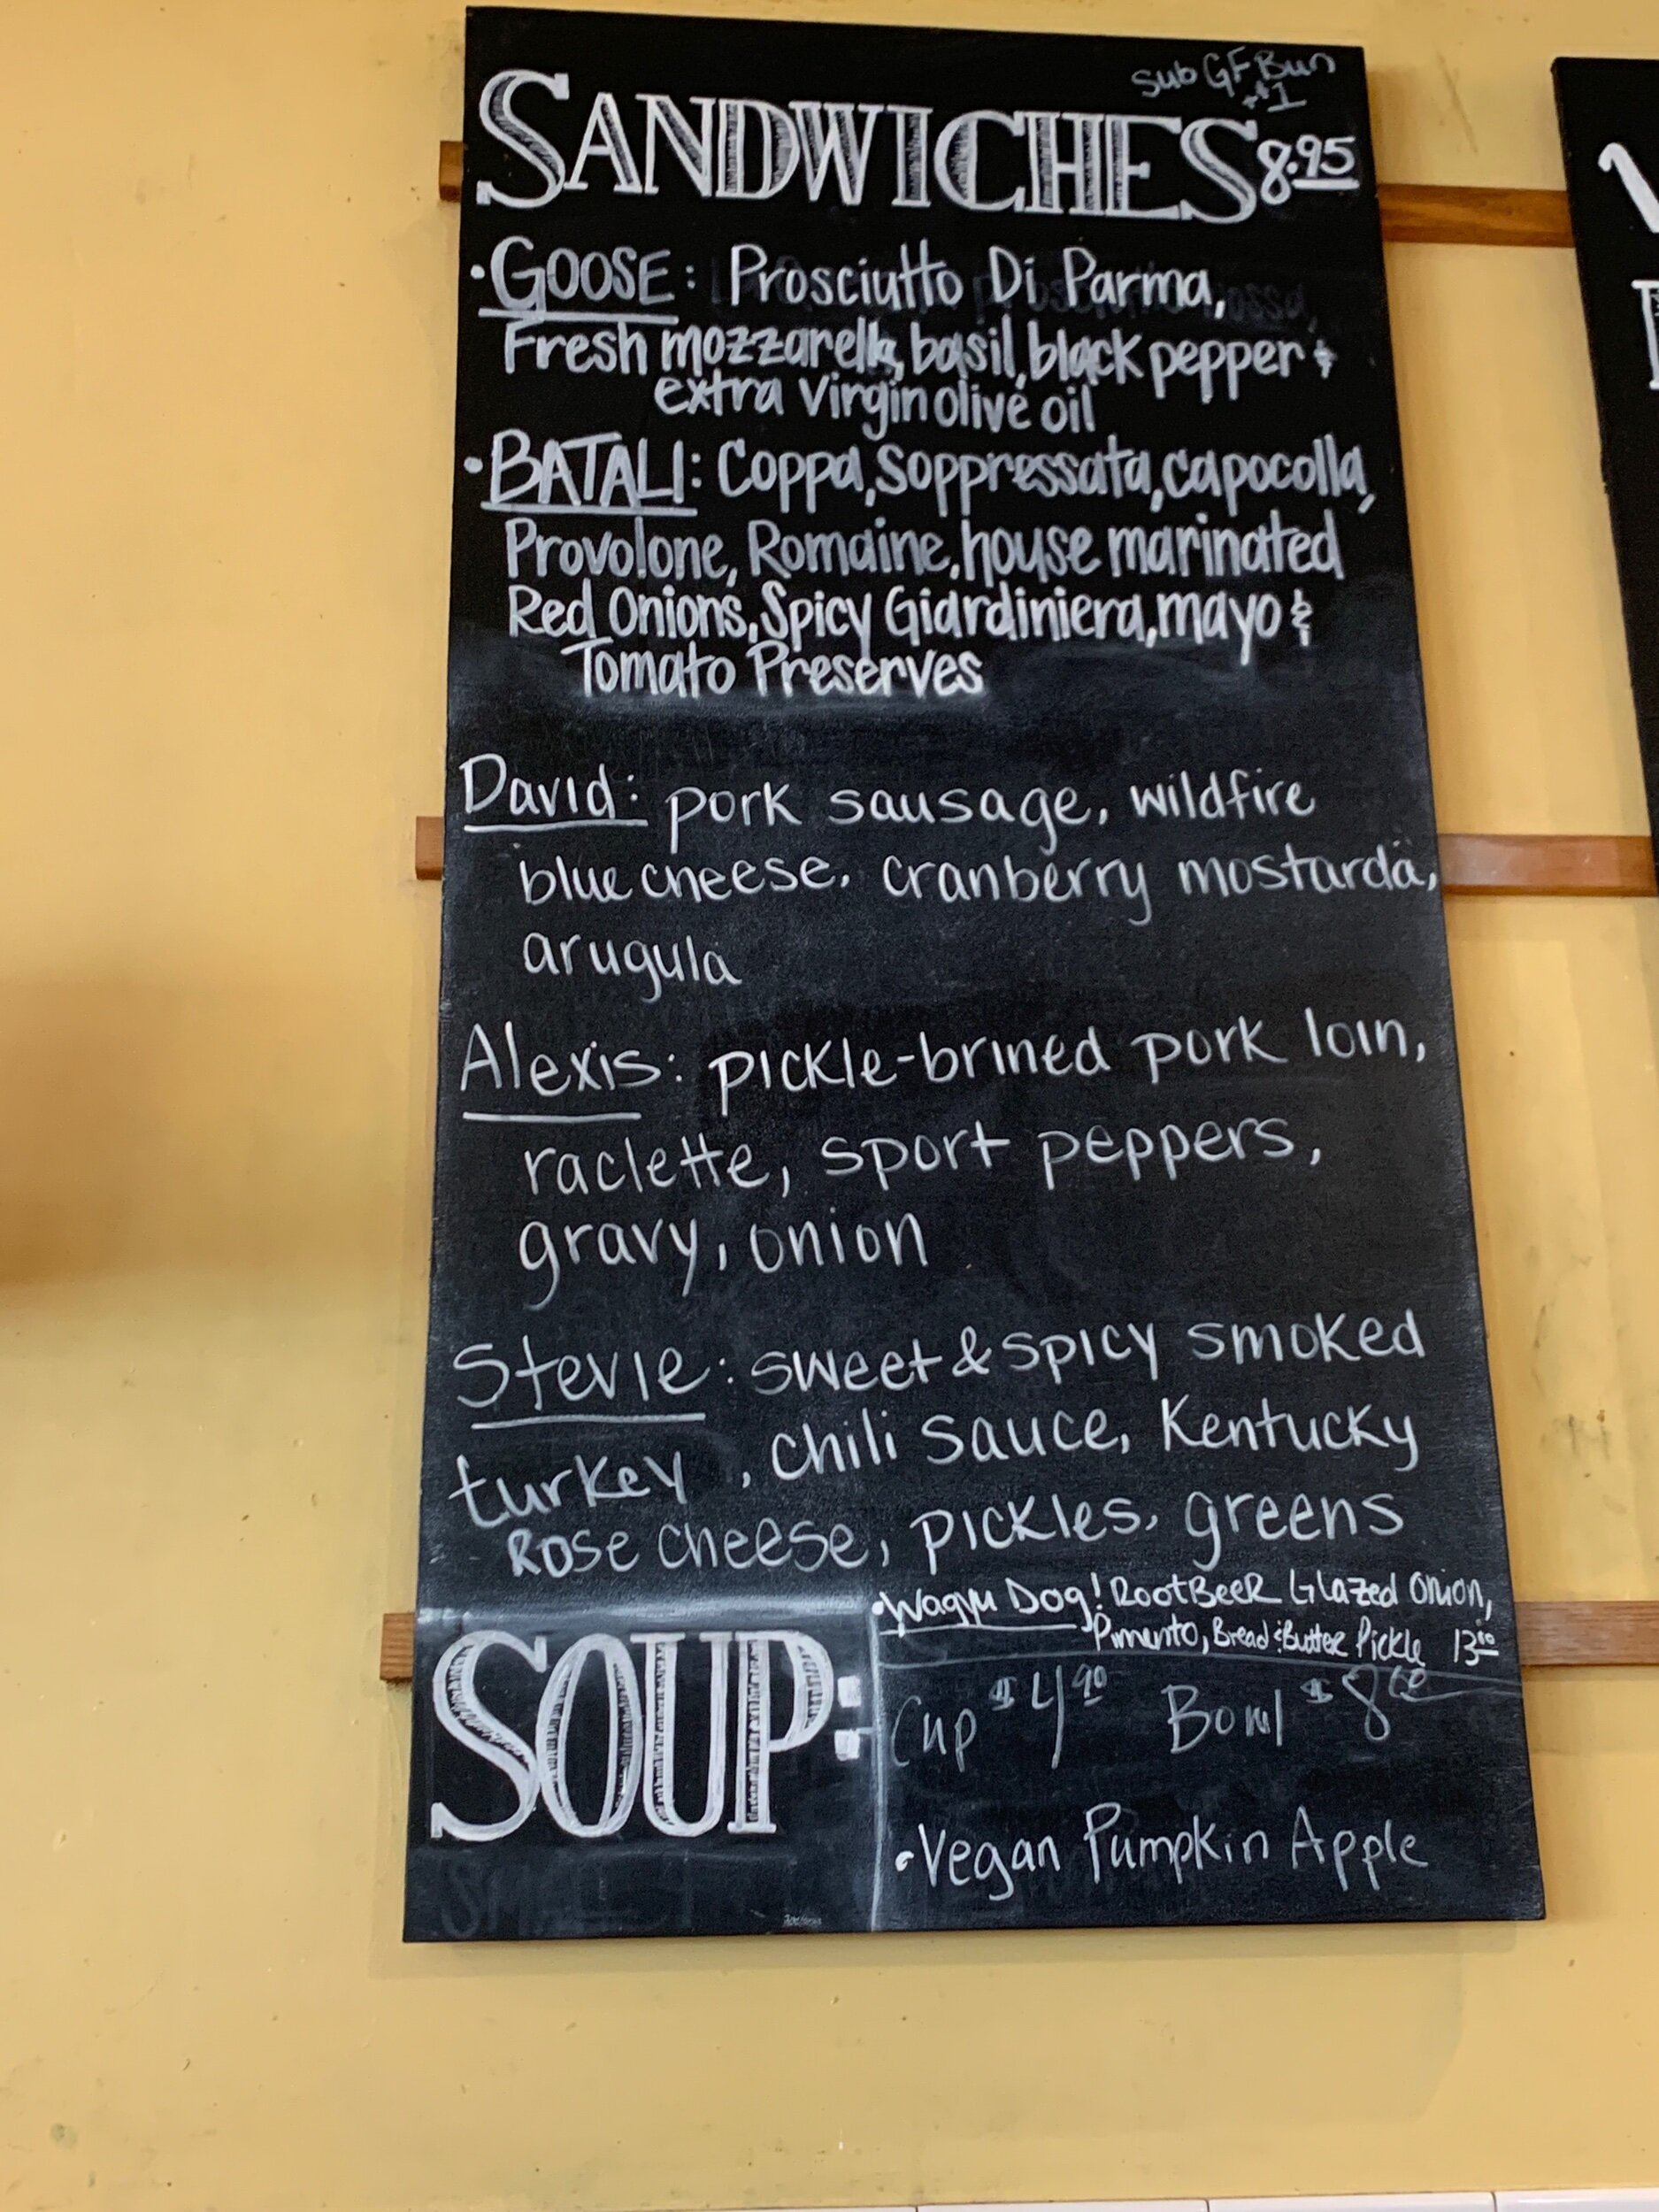 Sub GF Bun
+$1
SANDWICHES 8.95
• GOOSE: Prosciutto Di Parma,
Fresh mozzarella, basil, black pepper &
extra virgin olive oil
• BATALI: Coppa, Soppressata, Capocolla,
Provolone, Romaine, house marinated
Red Onions, Spicy Giardiniera, mayo &
Tomato Preserves
David: pork sausage, wildfire
blue cheese, cranberry mostarda,
arugula
Alexis: pickle-brined pork loin,
raclette, sport peppers,
gravy, onion
Stevie: sweet & spicy smoked
turkey, chili sauce, Kentucky
Rose cheese, pickles, greens
• Wagyu Dog! RootBeer Glazed Onion,
Pimento, Bread & Butter Pickle 13.00
SOUP:
Cup $4.90 Bowl $8.00
• Vegan Pumpkin Apple